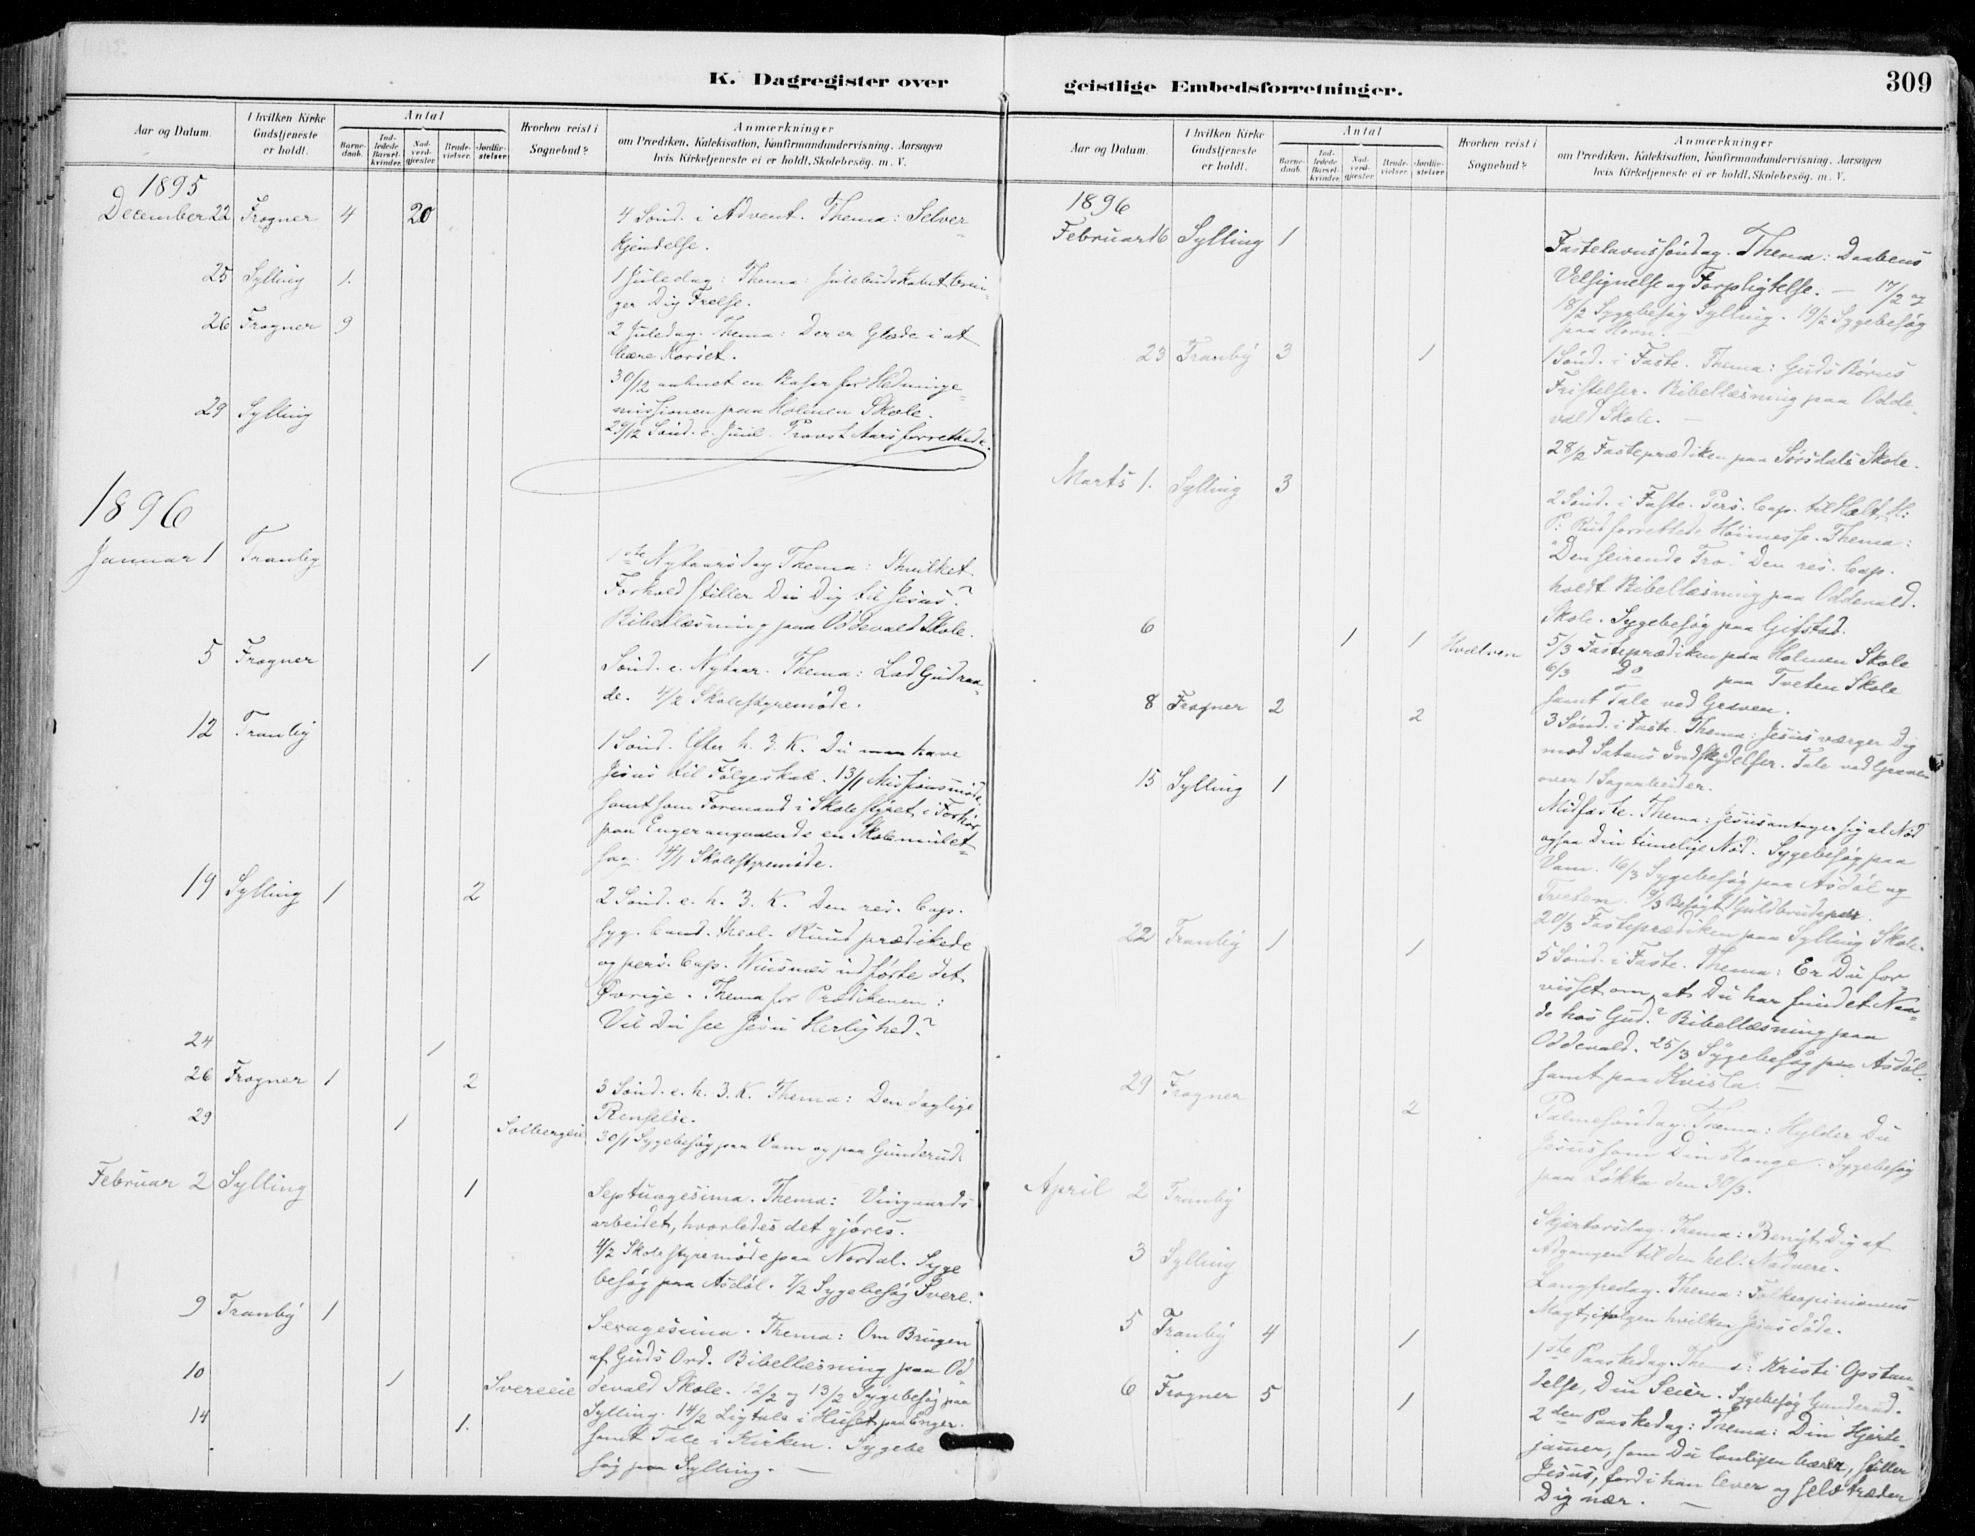 K. Dagregister over geistlige Embedsforretninger.
309
Aar og Datum.
I hvilken Kirke Gudstjeneste er holdt.
Antal
Barne-daab.
Ind-ledede Barsel-kvinder.
Nad-verd-gjæster
Brude-vielser.
Jordfæ-stelser.
Hvorhen reist i Sognebud?
Anmærkninger
om Prædiken, Katekisation, Konfirmandundervisning, Aarsagen
hvis Kirketjeneste ei er holdt, Skolebesøg m. V.
1895
December 22 Frogner 4 20 4 Sönd. i Advent. Thema: Selver-
kjendelse.
25 Sylling 1. 1 Juledag: Thema: Julebudskabet brin-
ger Dig Frelse.
26 Frogner 9 2 Juledag. Thema: Der er Glæde i at
bære Korset.
30/12 aabnet en Basar for Hedninge-
missionen paa Holmen Skole.
29 Sylling 29/12 Sönd. e. Juul. Provst Aars forrettede.
1896
Januar 1 Tranby 1ste Nytaarsdag Thema: I hvilket
Forhold stiller Du Dig til Jesus?
Bibellæsning paa Oddevald Skole.
5 Frogner 1 Sönd. e. Nytaar. Thema: Lad Gud raa-
de. 4/2 Skolestyremøde.
12 Tranby 1 Sönd. Efter h. 3. K. Du maa have
Jesus til Følgeskab. 13/1 Missionsmøde,
samt som Formand i Skolestyret i Forhør
paa Enger angaaende en Skolemulct-
sag. 14/1 Skolestyremøde.
19 Sylling 1 2 2 Sönd. e. h. 3. K. Den res. Cap.
syg. Cand. theol. Ruud prædikede
og pers. Cap. udførte det
Øvrige. Thema for Prædikenen:
Vil Du see Jesu Herlighed?
24 1
26 Frogner 1 2 3 Sönd. e. h. 3. K. Thema: Den daglige
Renselse.
29 1 Solbergeie 30/1 Sygebesøg paa Vam og paa Gunderud.
Februar 2 Sylling 1 Septuagesima. Thema: Vingaards
arbeidet, hvorledes det gjøres.
4/2 Skolestyremøde paa Nordal. Syge
besøg paa Asdøl. 7/2 Sygebesøg Svere.
9 Tranby 1 Sexagesima. Thema: Om Brugen
af Guds Ord. Bibellæsning paa Od
10 1 Svereeie devald Skole. 12/2 og 13/2 Sygebesøg paa
14 1. Sylling. 14/2 Ligtale i Huset paa Enger.
samt Tale i Kirken. Sygebe
søg paa Sylling. —
Aar og Datum.
I hvilken Kirke Gudstjeneste er holdt.
Antal
Barne-daab.
Ind-ledede Barsel-kvinder.
Nad-verd-gjæster
Brude-vielser.
Jordfæ-stelser.
Hvorhen reist i Sognebud?
Anmærkninger
om Prædiken, Katekisation, Konfirmandundervisning, Aarsagen
hvis Kirketjeneste ei er holdt, Skolebesøg m. V.
1896
Februar 16 Sylling 1 Fastelavnssöndag. Thema: Daabens
Velsignelse og Forpligtelse. — 17/2 og
18/2 Sygebesøg Sylling. 19/2 Sygebesøg
paa Horn. —
23 Tranby 3 1 1 Sönd. i Faste. Thema: Guds Børns
Fristelser. Bibellæsning paa Odde-
vald Skole. —
28/2 Fasteprædiken paa Sørsdals Skole.
Marts 1. Sylling 3 2 Sönd. i Faste. Pers. Cap. til
P: Rud forrettede Høimesse. Thema:
"Den seirende Tro." Den res. Cap.
holdt Bibellæsning paa Oddevald.
Skole. Sygebesøg paa Gifstad.
6 1 1 Hvalven 5/3 Fasteprædiken paa Holmen Skole
6/3 Do paa Tveten Skole
samt Tale ved Graven.
8 Frogner 2 2 3 Sönd. i Faste. Thema: Jesus værger Dig
mod Satans Indskydelser. Tale ved Graven
over 1 Sagarbeider.
15 Sylling 1 Midfaste. Thema: Jesus antager sig al Nød
ogsaa Din timelige Nød. Sygebesøg paa
Vam. 16/3 Sygebesøg paa Asdøl og
Tveten. 19/3 Besøgt Guldbrudepar.
20/3 Fasteprædiken paa Sylling Skole.
22 Tranby 1 1 5 Sönd. i Faste. Thema: Er Du for-
visset om, at Du har fundet Naa-
de hos Gud? Bibellæsning paa
Oddevald. 25/3 Sygebesøg paa Asdøl.
samt paa Kvisla. —
29 Frogner 2 Palmesöndag. Thema: Hylder Du
Jesus som Din Konge. Sygebesøg
paa Løkka den 30/3.
April 2 Tranby Skjærtorsdag. Thema: Benyt Dig af
Adgangen til den hel. Nadvere.
3 Sylling Langfredag. Thema: Folkeopinionens
Magt, ifølgen hvilken Jesus døde.
5 Tranby 4 1 1ste Paaskedag. Thema: Kristi Opstan-
delse, Din Seier. Sygebesøg Gunderud.
6 Frogner 5 1 2den Paaskedag: Thema: Din Hjerte-
jamer, som Du lønligen bærer, stiller
Jesus, fordi han lever og selv træder
Dig nær. —